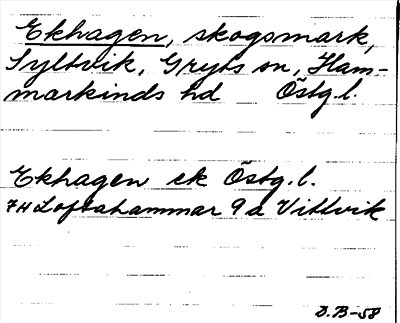 Ekhagen, skogsmark,
Syltvik, Gryts sn, Ham-
markinds hd Östg.l.
Ekhagen ek Östg.l.
7H Loftahammar 9 a Vittvik
D.B-58